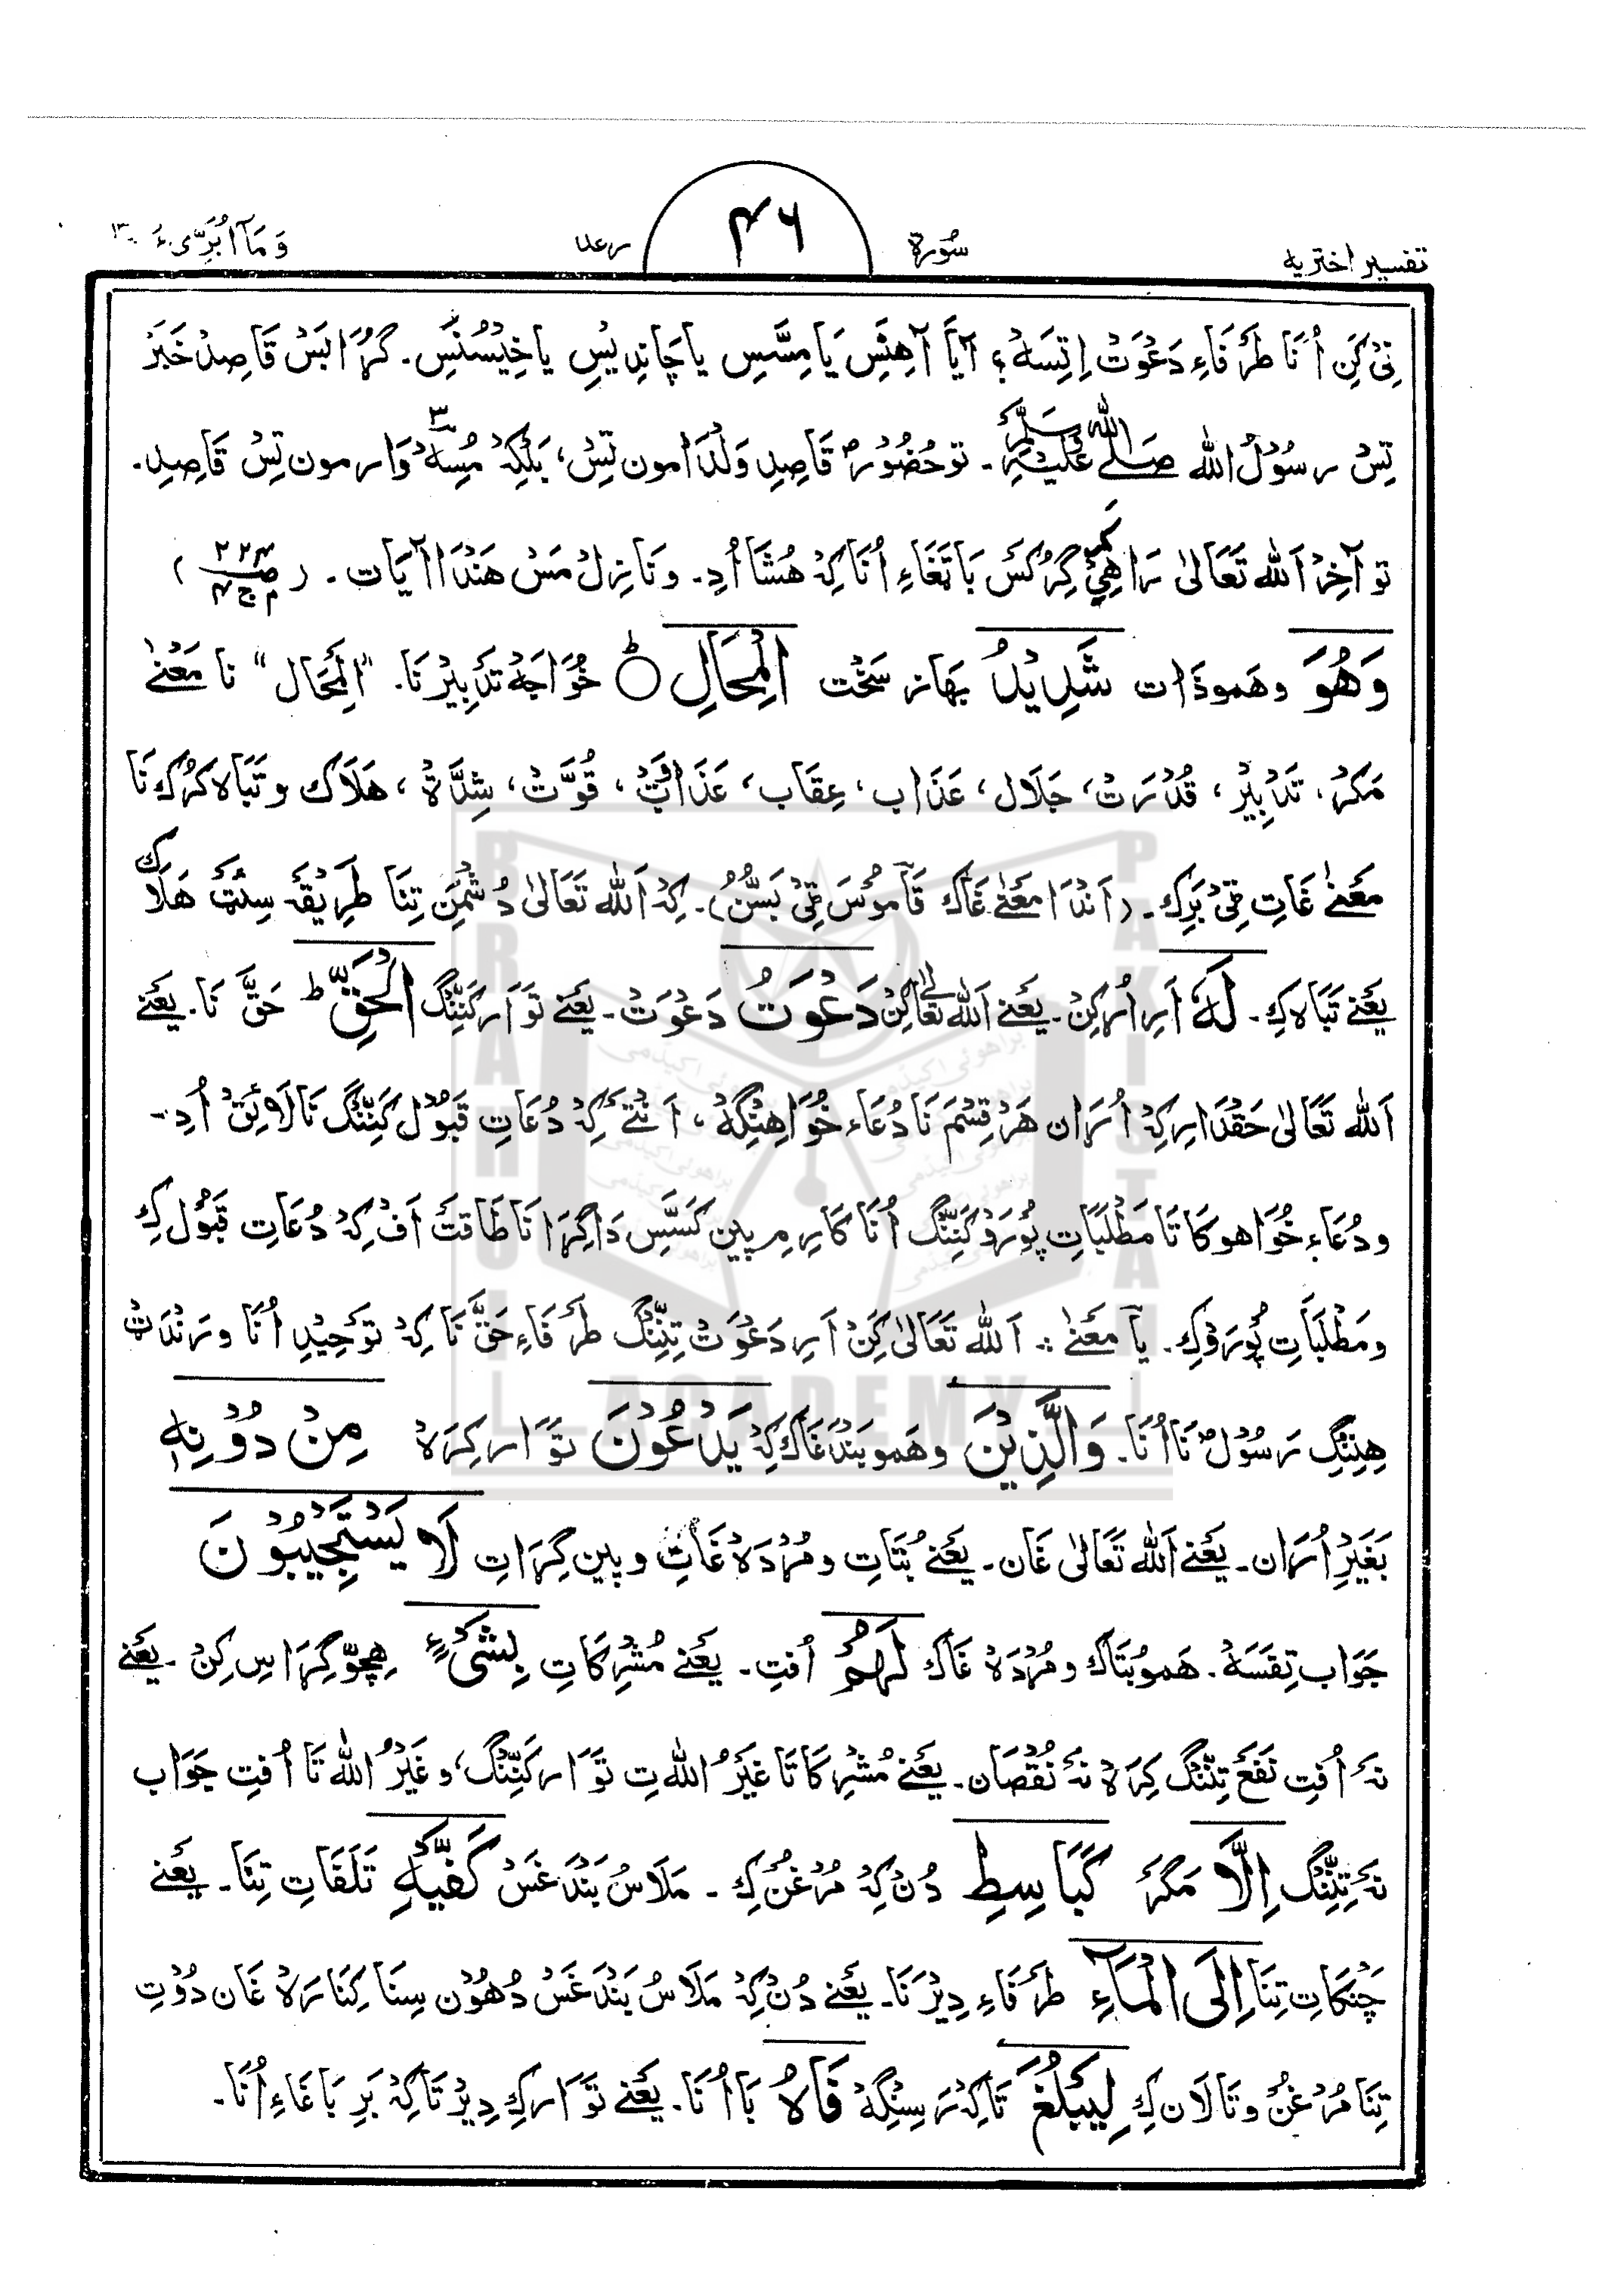 تفسیر اختریه
سُورة
۴۶
رعد
وَمَآ اُبَرِّیُٔ ۱۳
نِیْ کَنِ اُنَا طَرَفَاءِ دَعْوَتْ اِتِسَهْ؛ آیَا آهِنَسِ یَا مِسَّسِ یا چَاندِیسِ یا خِیسُنسِ۔ گُڑا بَسْ قَاصِدْ خَبَرْ
تِسْ رسُوْلُ الله صَلَّے اللهُ عَلَیْہِ وَسَلَّمَ۔ تو حُضُوْر ؐ قَاصِدِ وَلْدَا مون تِسْ، بَلْکِہْ مُسِهْ ۳ وَار مون تِسْ قَاصِدِ۔
تو آخِرْ اَلله تَعَالیٰ رَاهِیْ کَرِ گِرُکَسَ بَا تَغَاءِ اُنَا کِہْ هُشَا اُدِ۔ و نَازِلْ مَسْ هَنْدَا آیَات۔ (صـ ۲۲۴ م ج ۴)
وَهُوَ و هَمو ذَات شَدِیْدُ بَهَاز سَخْت الْمِحَالِ ○ ط خُوَاجَهْ تَدْبِیْرْ نَا۔ "اَلْمِحَال" نا مَعْنےٰ
مَکَرْ، تَدْبِیْرْ، قُدْرَتْ، جَلَال، عَذَاب، عِقَاب، عَذَابَتْ، قُوَّتْ، شِدَّةْ، هَلَاک و تَبَاہ کَرُک نَا
مَعْنےٰ غَاتِ ٹِیْ بَرِک۔ (اَنْدَا مَعْنےٰ غَاک قَامُوْسَ ٹِیْ بَسُّنُ)۔ کِہْ اَلله تَعَالیٰ دُشْمَنِ تِنَا طَرِیْقَهْ سِیَّتْ هَلَاک
یَعْنے تَبَاہ کِ۔ لَہٗ اَرِ اُرْکِنْ۔ یَعْنے اَلله تَعَالیٰ کِنْ دَعْوَتُ دَعْوَتْ۔ یَعْنے تَوَار کَنِنْگ الْحَقِّ ط حَقَّ نَا۔ یَعْنے
اَلله تَعَالیٰ حَقْدَارِ کِہْ اُرَان هَرْ قِسْمَ نَا دُعَاء خُوَاهِنْگِهْ، اَنْتَے کِہْ دُعَاتِ قَبُوْل کَنِنْگ نَا لَائِقْ اُدِ۔
و دُعَاءِ خُوَاهو کَا تَا مَطْلَبَاتِ پُوْرَوْ کَنِنْگ اُنَا کَارِم پین کَسَسِ دَاگِرَا نَا طَاقَتْ اَفْ کِہْ دُعَاتِ قَبُوْل کِ
و مَطْلَبَاتِ پُوْرَوْ کِ۔ یَا مَعْنےٰ: اَلله تَعَالیٰ کِنْ اَرِ دَعْوَتْ تِنِنْگ طَرَفَاءِ حَقَّ نَا کِہْ تَوْحِیْدِ اُنَا و رَنْدَتْ
هِنِنْگِ رَسُوْل ؐ نَا اُنَا۔ وَالَّذِیْنَ و هَمو بَنْدَ غَاک کِہْ یَدْعُوْنَ تَوَار کِرَہْ مِنْ دُوْنِهٖ
بَغَیْرِ اُرَان۔ یَعْنے اَلله تَعَالیٰ غَان۔ یَعْنے بُتَاتِ و مُرْدَہْ غَاتِ و پین گِرَاتِ لَا یَسْتَجِیْبُوْنَ
جَوَاب تِفَسَهْ۔ هَمو بُتَاک و مُرْدَہْ غَاک لَهُمْ اُفتِ۔ یَعْنے مُشْرِکَاتِ بِشَیْءٍ هِچّو گِرَاسِ کِنْ۔ یَعْنے
نَہ اُفتِ نَفَعْ تِنِنْگ کِرَہْ نَہ نُقْصَان۔ یَعْنے مُشْرِکَا تَا غَیْرُ اللهِ تِ تَوَار کَنِنْگ، و غَیْرُ الله تَا اُفتِ جَوَاب
نَہ تِنِنْگ اِلَّا مَگَرْ کَبَاسِطِ دُنْ کِہْ مُرْغُن کِ۔ مَلَاسُ بَنْدَغَسْ کَفَّیْہِ تَلَقَاتِ تِنَا۔ یَعْنے
چَنْکَاتِ تِنَا اِلَی الْمَآءِ طَرَفَاءِ دِیْرْ نَا۔ یَعْنے دُنْ کِہْ مَلَاسُ بَنْدَغَسْ دُهُوْن سِنَا کِنَارَہْ غَان دُوْتِ
تِنَا مُرْغُنْ و تَالَان کِ لِیَبْلُغَ تَا کِہْ رَسِنْگِهْ فَاہُ بَا اُنَا۔ یَعْنے تَوَار کِ دِیْرْ تَا کِہْ بَرِ بَا غَاءِ اُنَا۔